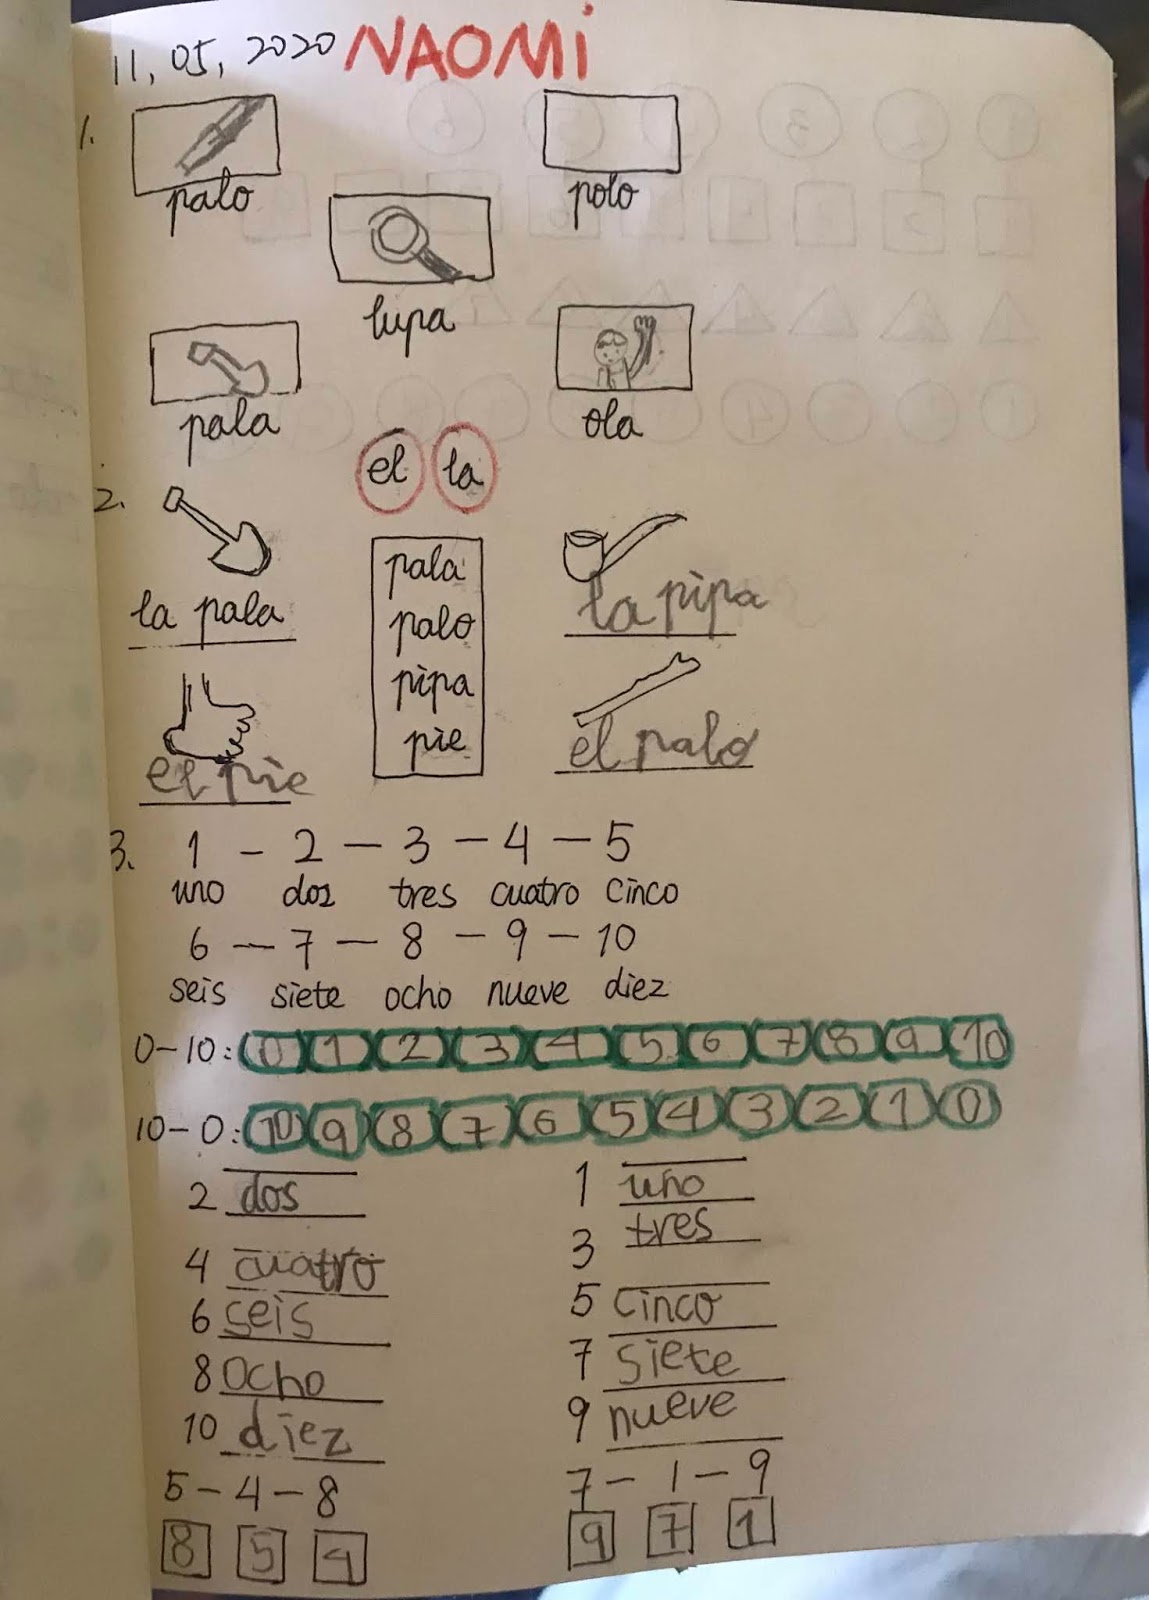 11, 05, 2020 NAOMi
1.
palo polo
lupa
pala ola
el la
2.
pala
la pala la pipa
palo
pipa
el pie pie el palo
3. 1 - 2 - 3 - 4 - 5
uno dos tres cuatro cinco
6 - 7 - 8 - 9 - 10
seis siete ocho nueve diez
0-10: 0 1 2 3 4 5 6 7 8 9 10
10-0: 10 9 8 7 6 5 4 3 2 1 0
2 dos 1 uno
4 cuatro 3 tres
6 seis 5 cinco
8 ocho 7 siete
10 diez 9 nueve
5-4-8 7-1-9
8 5 4 9 7 1